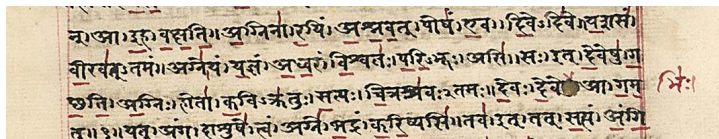 न्। आ। इह। वक्षति॥ अग्निना। रयिं। अश्नवत्। पोषं। एव। दिवेऽदिवे॥ यशसं
वीरवत्ऽतमं॥ अग्ने। यं। यज्ञं। अध्वरं। विश्वतः। परिऽभूः। असि॥ सः। इत्। देवेषु। ग
च्छति॥ अग्निः। होता। कविऽक्रतुः। सत्यः। चित्रश्रवःऽतमः॥ देवः। देवे आ। गम
भिः।
त्॥१॥ यत्। अंग। दाशुषे। त्वं। अग्ने। भद्रं। करिष्यसि॥ तव। इत्। तत्। सत्यं। अंगि